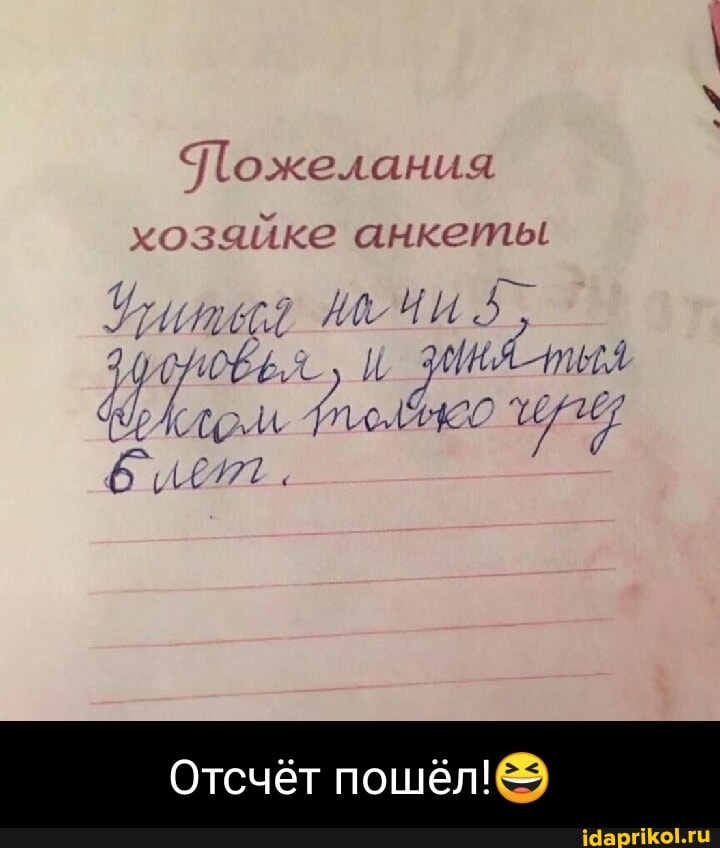 Пожелания
хозяйке анкеты
Учиться на 4 и 5,
здоровья, и заняться
сексом только через
6 лет.
Отсчёт пошёл!😆
idaprikol.ru